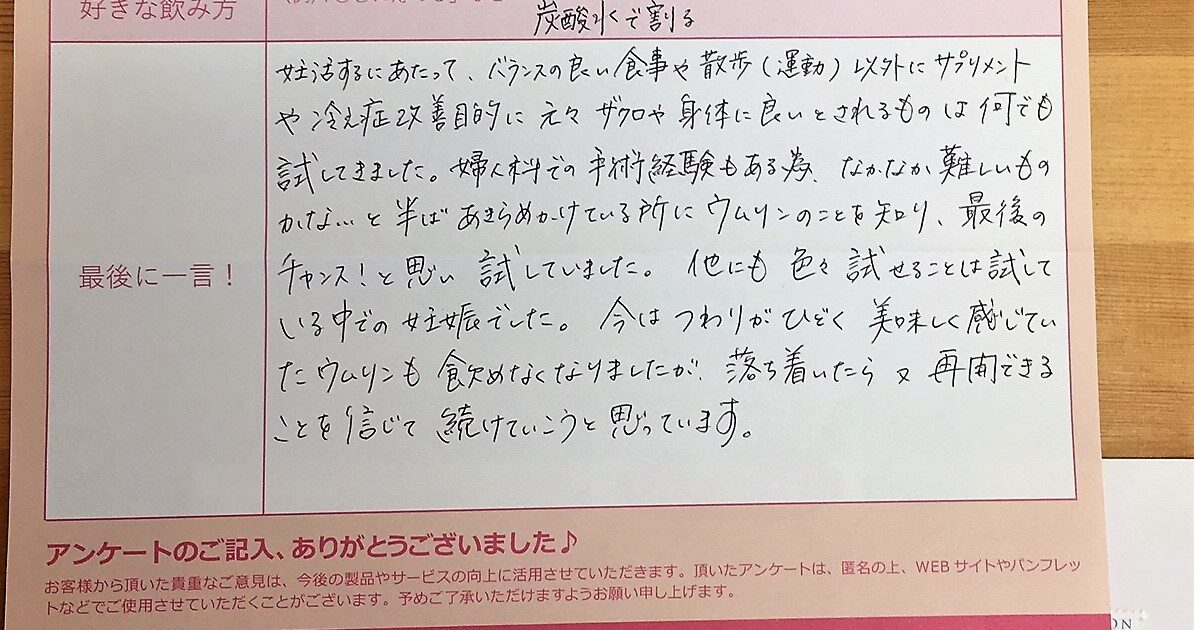 好きな飲み方
炭酸水で割る
最後に一言！
妊活するにあたって、バランスの良い食事や散歩(運動)以外にサプリメント
や冷え症改善目的に元々ザクロや身体に良いとされるものは何でも
試してきました。婦人科での手術経験もある為、なかなか難しいもの
かな…と半ばあきらめかけている所にウムリンのことを知り、最後の
チャンス！と思い試していました。他にも色々試せることは試して
いる中での妊娠でした。今はつわりがひどく美味しく感じてい
たウムリンも飲めなくなりましたが、落ち着いたら又再開できる
ことを信じて続けていこうと思っています。
アンケートのご記入、ありがとうございました♪
お客様から頂いた貴重なご意見は、今後の製品やサービスの向上に活用させていただきます。頂いたアンケートは、匿名の上、WEBサイトやパンフレッ
トなどでご使用させていただくことがございます。予めご了承いただけますようお願い申し上げます。
ON